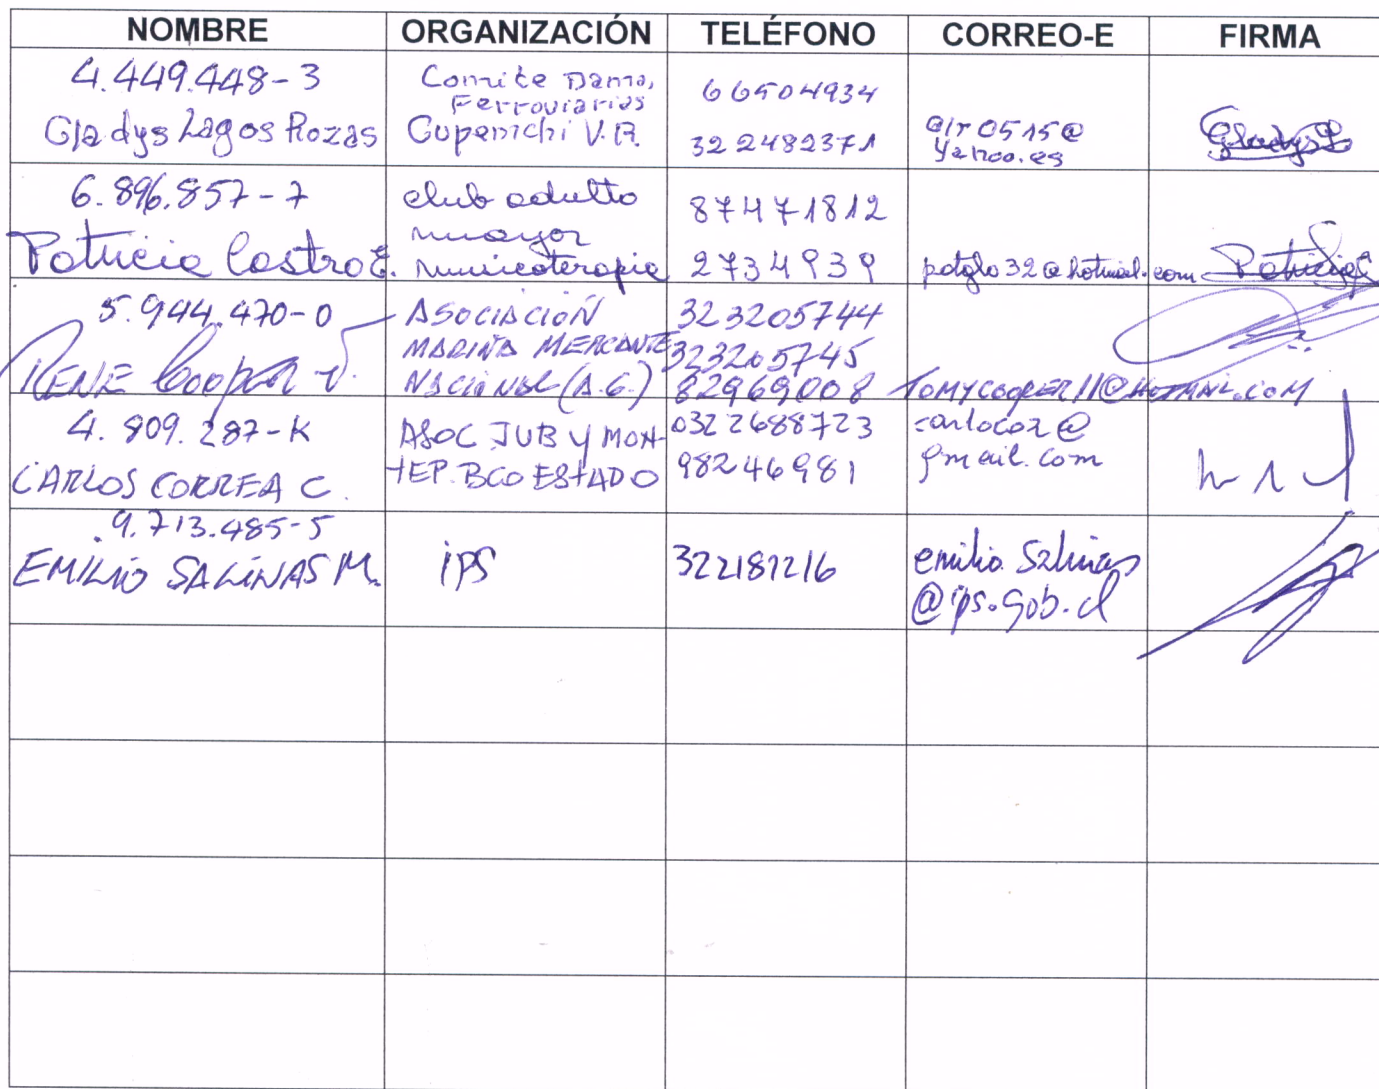 NOMBRE ORGANIZACIÓN TELÉFONO CORREO-E FIRMA
4.449.448-3
Gladys Lagos Rozas
Comite Dama,
Ferroviarias
Cupenichi V.R.
66504934
322482371
glr0515@
yahoo.es
Gladys L
6.896.857-7
Patricia Castro E.
club adulto
mayor
musicoterapia
87471812
2734939
patglo32@hotmail.com
Patricia
5.944.470-0
RENE Cooper V.
ASOCIACIÓN
MARINA MERCANTE
NACIONAL (A.G.)
323205744
323205745
82969008
TOMYCOOPER11@HOTMAIL.COM
4.809.287-K
CARLOS CORREA C.
ASOC JUB Y MON-
TEP. BCO ESTADO
0322688723
98246981
carlocor@
gmail.com
9.713.485-5
EMILIO SALINAS M.
iPS
322181216
emilio.Salinas
@ips.gob.cl